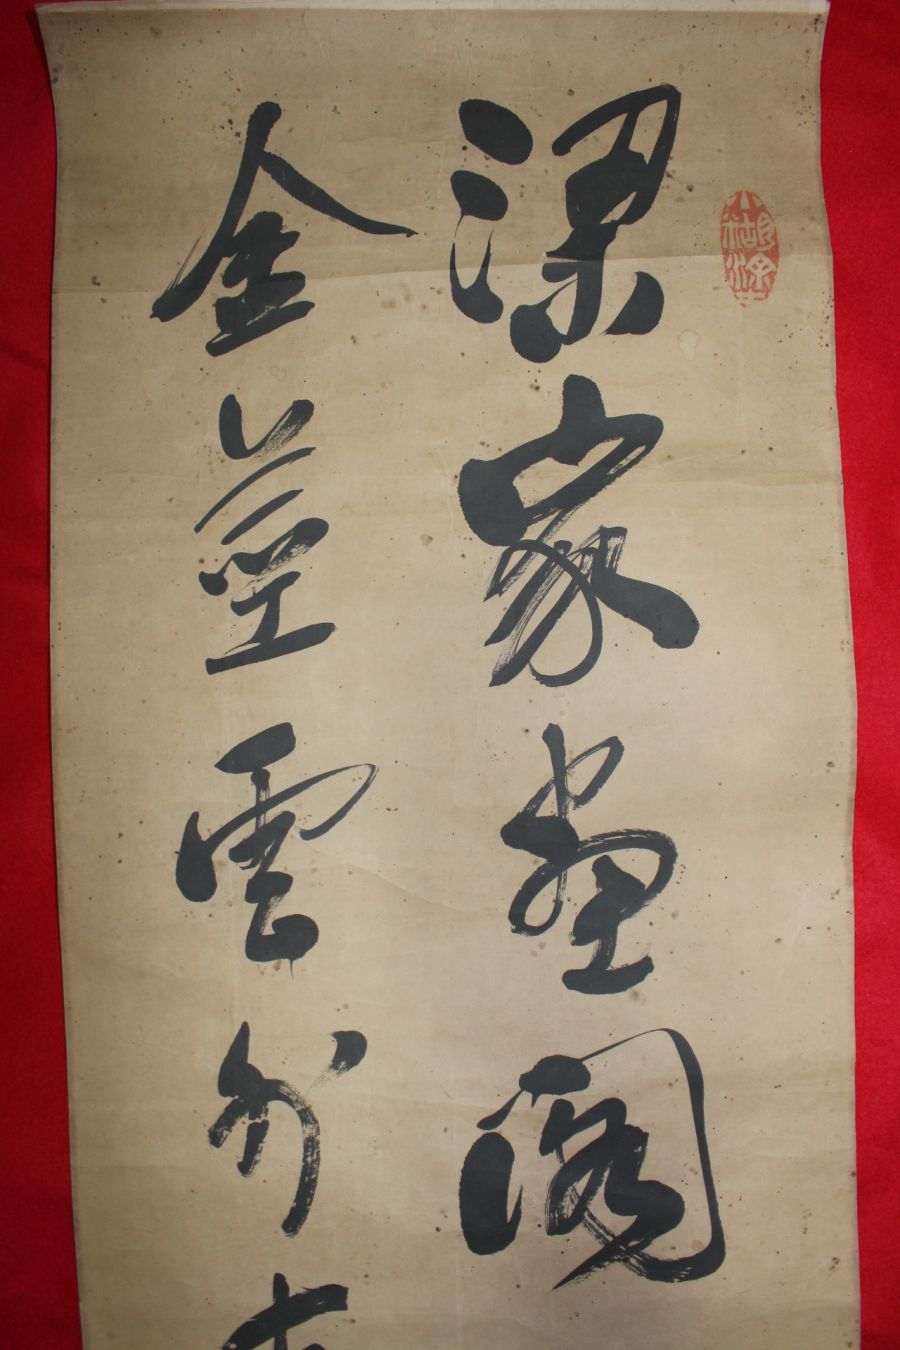 梁家畫閣
金莖雲外